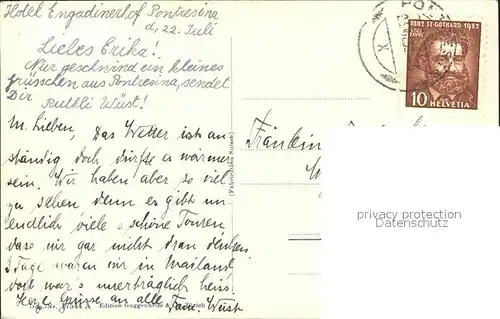 Hotel Engadinerhof Pontresina
d. 22. Juli
Liebes Erika!
Nur geschwind ein kleines
Grüsschen aus Pontresina, sendet
Dir Ruthli Wüst!
M. Lieben, Das Wetter ist an
ständig doch dürfte es wärmer
sein. Wir haben aber so viel
zu sehen denn es gibt un
endlich viele schöne Touren
dass wir gar nicht dran denken.
3 Tage waren wir in Mailand,
dort war's unerträglich heiss.
Herzl Grüsse an alle Fam. Wüst
Edition Guggenheim & Zürich
(Fabrication Suisse)
Fräulein
1882 ST. GOTTHARD 1932
10 HELVETIA
X
privacy protection
Datenschutz